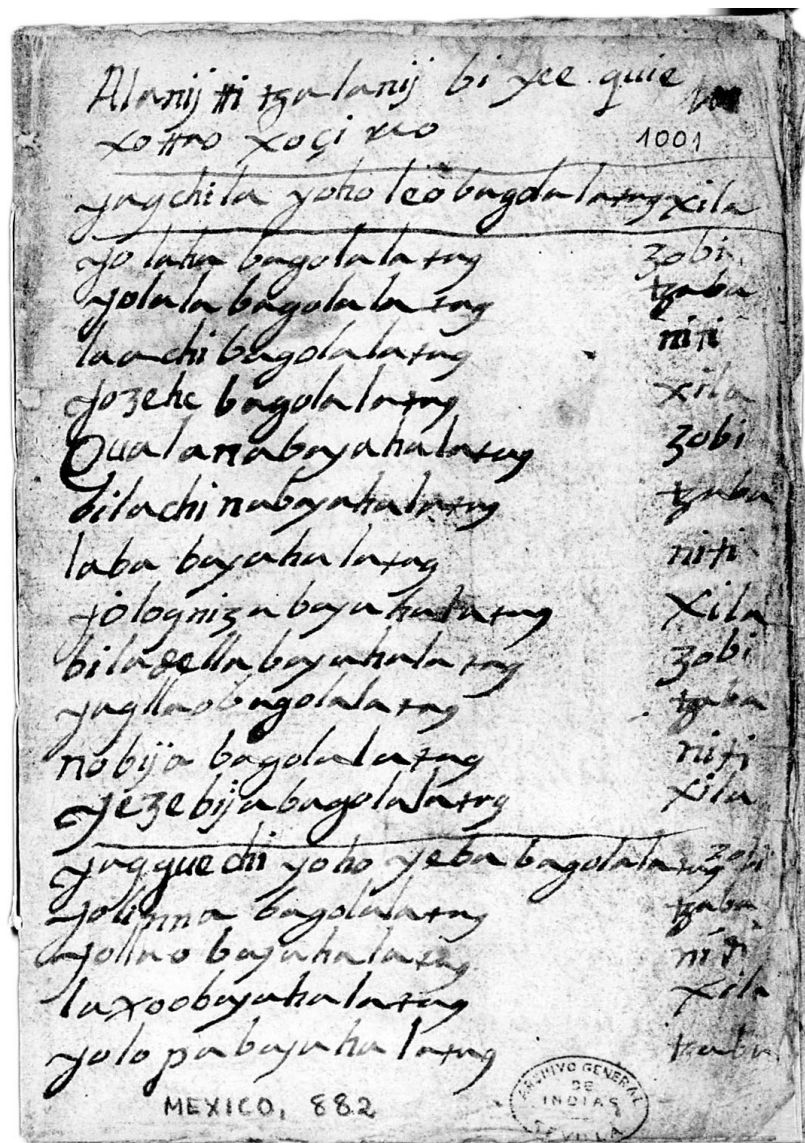 Alanij tti tza lanij bi yee quie
xotto xoçi xeo
1001
yagchila yoho leo bagolalatag xila
yolaha bagolalatag zobi
yolala bagolalatag tzaba
laachi bagolalatag niti
yozehe bagolalatag xila
Qualanabayahalatag zobi
bilachinabayahalatag tzaba
laba bayahalatag niti
yologniza bayahalatag xila
biladella bayahalatag zobi
yagllaobagolalatag tzaba
nobija bagolalatag niti
yezebijabagolalatag xila
yagguechi yoho yeba bagolalatag zobi
yolinna bagolalatag tzaba
yollao bayahalatag niti
laxoobayahalatag xila
yolopabayahalatag tzaba
MEXICO, 882
ARCHIVO GENERAL
DE
INDIAS
SEVILLA